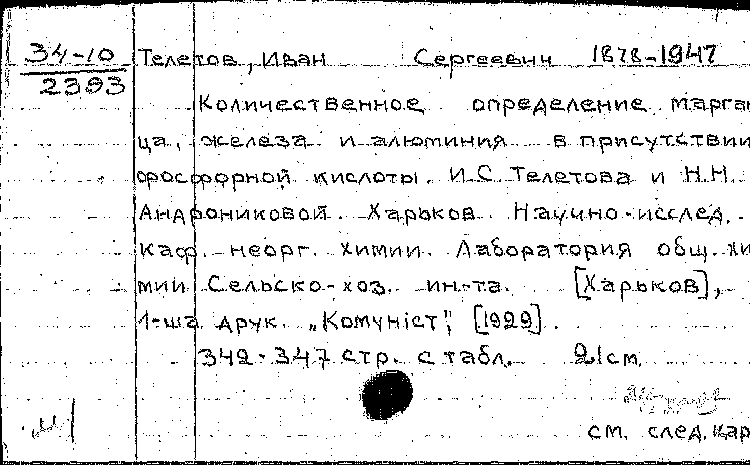 34-10
2393
Телетов, Иван Сергеевич 1878-1947
Количественное определение марган
ца, железа и алюминия в присутствии
фосфорной кислоты. И.С. Телетова и Н.Н.
Андрониковой. Харьков. Научно-исслед.
каф. неорг. химии. Лаборатория общ. хи
мии Сельско-хоз. ин-та. [Харьков],
1-ша друк. „Комуніст”, [1929].
342-347 стр. с табл. 21см.
см. след. кар